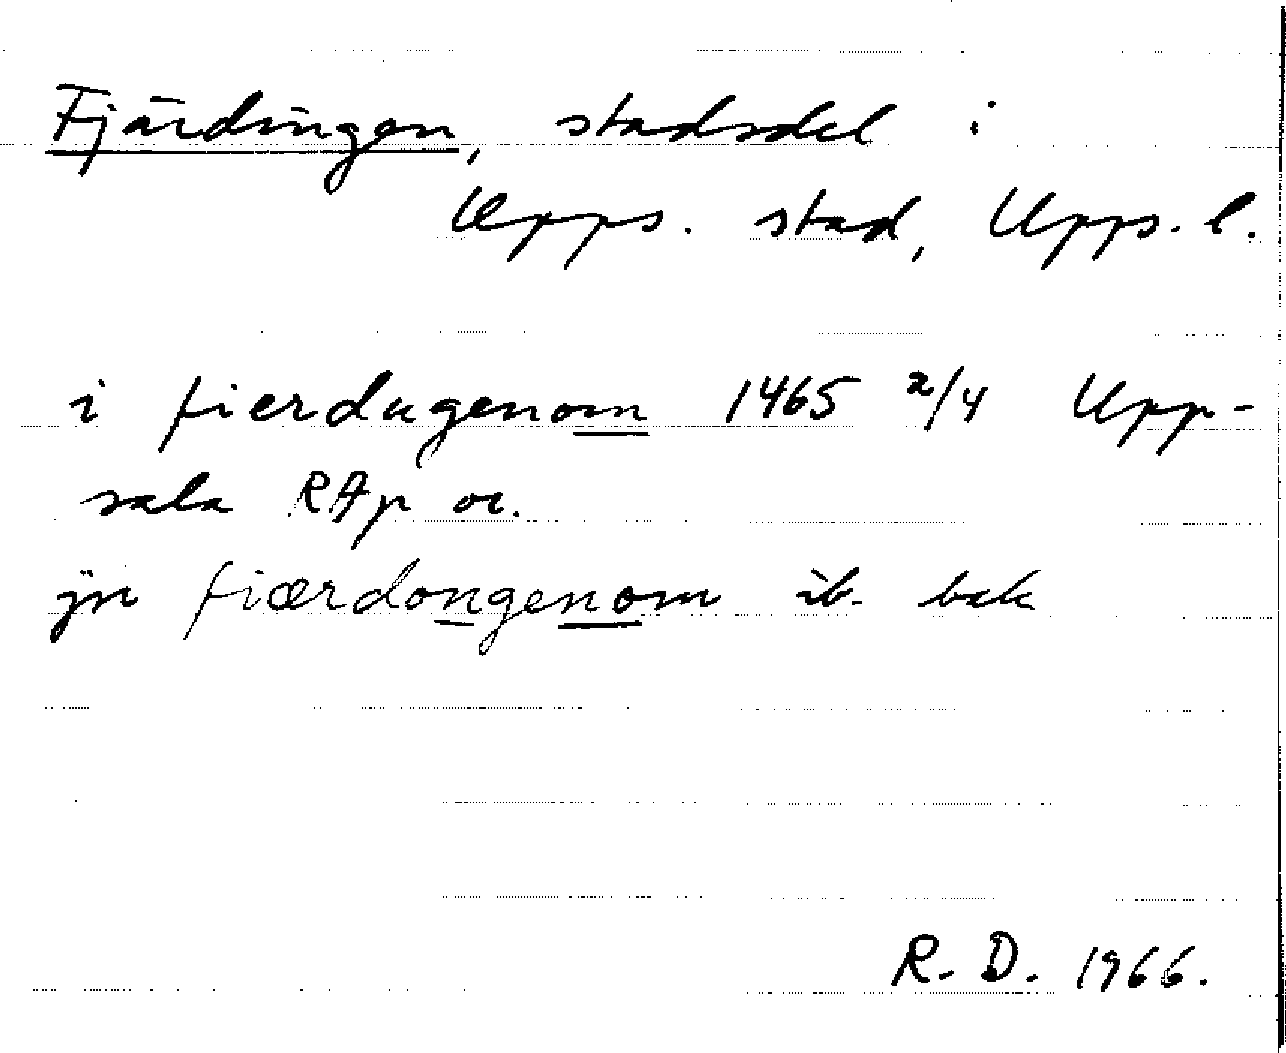 Fjärdingen, stadsdel i
Upps. stad, Upps. l.
i fierdugenom 1465 2/4 Upp-
sala RAp or.
jn fiærdongenom ib. bak
R. D. 1966.